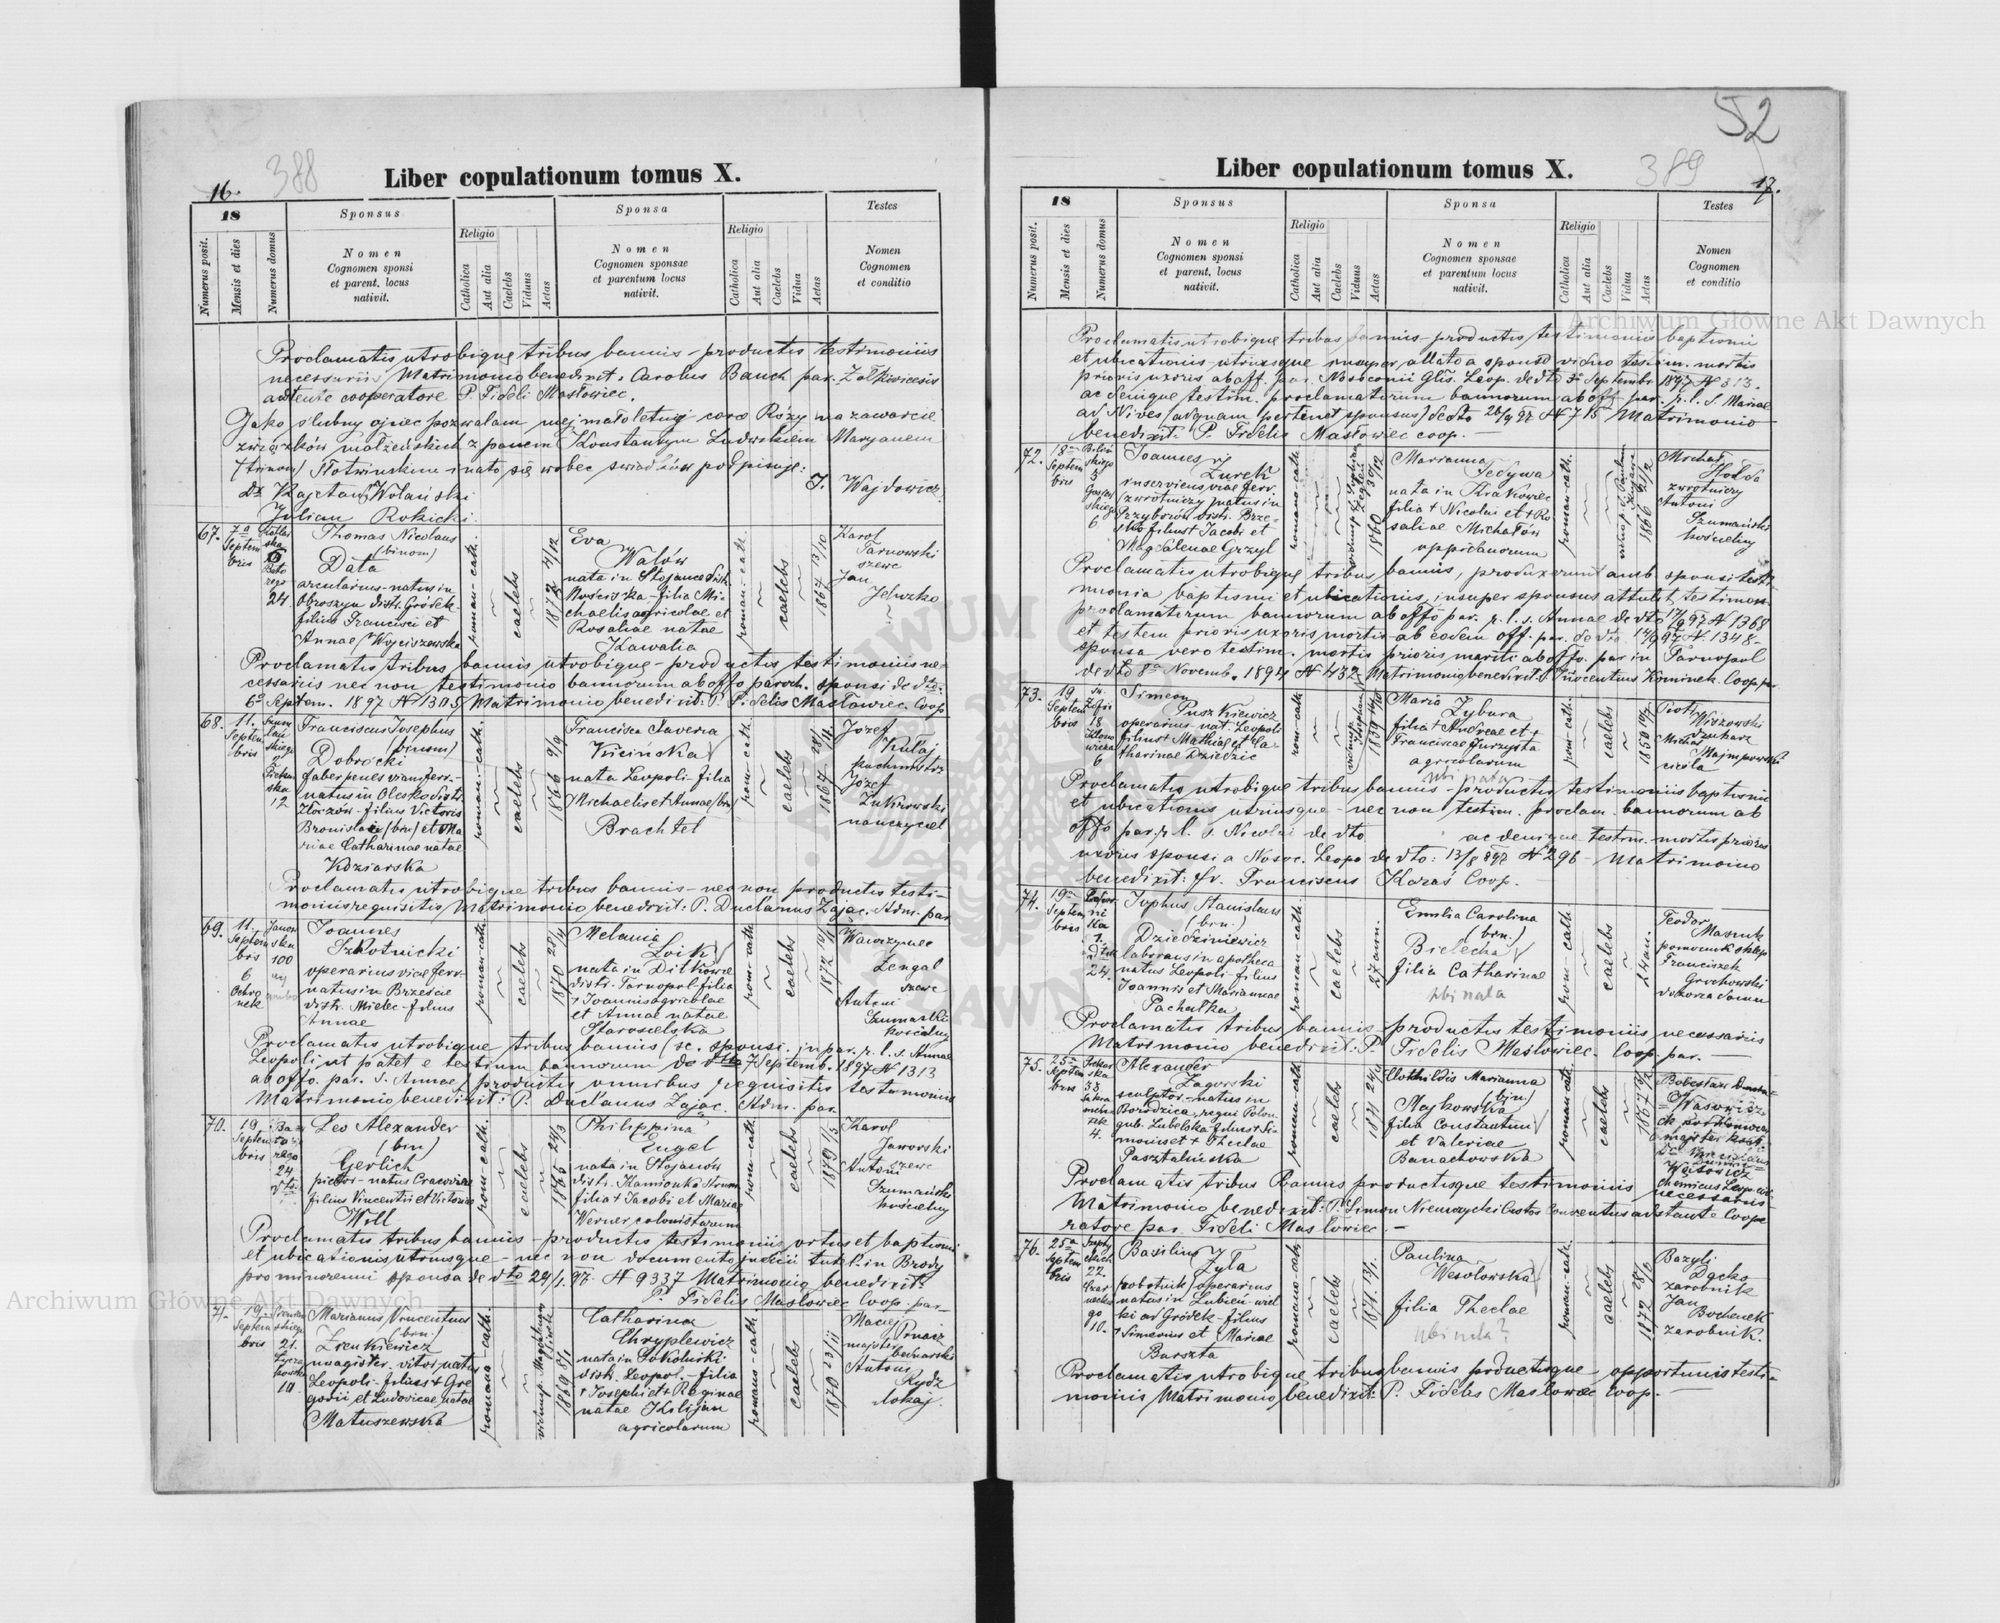 52
16.
388
Liber copulationum tomus X.
18
Sponsus
Sponsa
Testes
Numerus posit.
Mensis et dies
Numerus domus
Nomen
Cognomen sponsi
et parent. locus
nativit.
Religio
Catholica
Aut alia
Caelebs
Viduus
Aetas
Nomen
Cognomen sponsae
et parentum locus
nativit.
Religio
Catholica
Aut alia
Caelebs
Vidua
Aetas
Nomen
Cognomen
et conditio
Proclamatis utrobique tribus bannis – productis testimoniis
necessariis Matrimonio benedixit: Carolus Bauch par.
adstante cooperatore P. Fideli Masłowiec.
Jako ślubny ojciec pozwalam mej małoletniej córce Róży na zawarcie
związków małżeńskich z panem Konstantym Ludwikiem Maryanem
(trinom) Słotwińskim i na to się wobec świadków podpisuję:
Dr Kajetan Wolański
J. Wajdowicz
Julian Rokicki
67.
7a
Septem
bris
24.
Thomas Nicolaus
(binom)
Data
arcularius natus in
Obroszyn distr. Gródek
filius Francisci et
Annae Wojciszewska
roman-cath.
caelebs
1872 4/12
Eva
Walów
nata in Stojance distr.
Mościska – filia Mi-
chaelis agricolae et
Rosaliae natae
Kawalia
roman-cath.
caelebs
1867 13/10
Karol
Tarnowski
szewc
Jan
Jelwzko
Proclamatis tribus bannis utrobique – productis testimoniis ne-
cessariis nec non testimonio bannorum ab offo paroch. sponsi de dto
6a Septem. 1897 N 1305 Matrimonio benedixit: P. Fidelis Masłowiec Coop
68.
11.
Septem
bris
12
Franciscus Josephus
(binom)
Dobrocki
natus in Olesko distr.
Złoczów – filius Victoris
Bronislai (bin) et Ma
riae Catharinae natae
Koziarska
roman-cath.
caelebs
1866 9/9
Francisca Xaveria
Kicińska
nata Leopoli – filia
Michaelis et Annae (bin)
Brachtel
rom-cath
caelebs
1867 28/11
Józef
Kułaj
Józef
Żukrowski
nauczyciel
Proclamatis utrobique tribus bannis – nec non productis testi-
moniis requisitis Matrimonio benedixit: P. Duclanus Zając. Adm. par.
69.
11.
Septem
bris
6
Janow
ska
100
Joannes
Szkotnicki
operarius viae ferr.
natus in Brzeście
distr. Mielec – filius
Annae
roman-cath.
caelebs
1870 28/4
Melania
Loik
nata in Ditkowce
distr. Tarnopol filia
+ Joannis agricolae
et Annae natae
Starosielska
rom-cath
caelebs
Wawrzyniec
Zengal
szewc
Antoni
Szumański
kościelny
Proclamatis utrobique tribus bannis (sc. sponsi in par. r. l. s. Annae
Leopoli ut patet e testium bannorum de dto 7 Septemb. 1897 N 1313
ab offo. par. S. Annae) productis omnibus requisitis testimoniis
Matrimonio benedixit: P. Duclanus Zając. Adm. par.
70.
19.
Septem
bris
24
Leo Alexander
(bin)
Gerlich
pictor – natus Cracoviae
filius Vincentii et Victoriae
Woll
rom-cath.
caelebs
1865 24/3
Philippina
Engel
nata in Stojanów
distr. Kamionka Strum
filia + Jacobi et Mariae
Werner colonistarum
rom-cath
caelebs
1879 1/5
Karol
Jaworski
szewc
Antoni
Szumański
kościelny
Proclamatis tribus bannis – productis testimoniis ortus et baptismi
et ubicationis utriusque – nec non documento judicii tutel. in Brody
pro minorenni sponsa de dto 29/1. 97. N 9337 Matrimonio benedixit:
P. Fidelis Masłowiec Coop. par.
71.
19.
Septem
bris
21.
10
Marianus Vincentius
(bin)
Zienkiewicz
magister vitor. natus
Leopoli – filius + Gre
gorii et Ludovicae natae
Matuszewska
romano-cath.
1869 8/1
Catharina
Chryplewicz
nata in Sokolniki
distr. Leopol. – filia
+ Josephi et + Reginae
natae Kilijan
agricolarum
romano-cath
caelebs
1870 23/11
Maciej
Prnacz
majster bednarski
Antoni
Rydz
lokaj.
389
17.
Liber copulationum tomus X.
18
Sponsus
Sponsa
Testes
Numerus posit.
Mensis et dies
Numerus domus
Nomen
Cognomen sponsi
et parent. locus
nativit.
Religio
Catholica
Aut alia
Caelebs
Viduus
Aetas
Nomen
Cognomen sponsae
et parentum locus
nativit.
Religio
Catholica
Aut alia
Caelebs
Vidua
Aetas
Nomen
Cognomen
et conditio
Proclamatis utrobique tribus bannis – productis testimoniis baptismi
et ubicationis utriusque insuper allato a sponso viduo testim. mortis
prioris uxoris ab off. par. Nosoconii Glis. Leop. de dto 3a Septembr. 1897 N 313.
ac denique testim. proclamatorum bannorum ab off. par. r. l. S. Mariae
ad Nives (ad quam pertinet sponsus) de dto 26/9 97 N 715 Matrimonio
benedixit: P. Fidelis Masłowiec coop.
72.
18a
Septem
bris
6
Joannes
Żurek
inserviens viae ferr.
(zwrotniczy) natus in
Przyborów distr. Brze-
sko filius + Jacobi et
Magdalenae Grzyl
romano-cath.
1860 30/12
Marianna
Jedywa
nata in Krakowiec
filia + Nicolai et + Ro
saliae Michałów
oppidanorum
roman-cath.
1866 21/2
Michał
Hołda
zwrotniczy
Antoni
Szumański
kościelny
Proclamatis utrobique tribus bannis, produxerunt amb. sponsi testi-
monia baptismi et ubicationis, insuper sponsus attulit testimon.
proclamatorum bannorum ab offo par. r. l. s. Annae de dto 17/9 97 N 1368
et testem prioris uxoris mortis – ab eodem off. par. de dto 17/9 97 N. 1348 –
sponsa vero testim. mortis prioris mariti ab offo. par in Tarnopol
de dto 8a Novemb. 1894 N 432 Matrimonio benedixit: P. Vincentius Kominek Coop. par
73.
19
Septem
bris
18
6
Simeon
Puszkiewicz
operarius – nat. Leopoli
filius + Mathiae et Ca-
tharinae Dziedzic
rom-cath
Maria
Zybura
filia + Andreae et +
Franciscae Jurzysta
agricolarum
ubi nata
rom-cath.
caelebs
Piotr
Wiszowski
drukarz
Michał
cieśla
Proclamatis utrobique tribus bannis – productis testimoniis baptismi
et ubicationis utriusque – nec non testim. proclam. bannorum ab
offo par. r. l. s. Nicolai de dto
ac denique testim. mortis prioris
uxoris sponsi a Nosoc. Leopo de dto: 13/8 897 N 296 – Matrimonio
benedixit: fr. Franciscus Karaś Coop.
74.
19a
Septem
bris
1.
24.
Josephus Stanislaus
(bin.)
Dziedziniewicz
laborans in apotheca
natus Leopoli – filius
Joannis et Mariannae
Pachałka
roman-cath.
caelebs
27 ann.
Emilia Carolina
(bin.)
Bielecka
filia Catharinae
ubi nata
rom-cath
caelebs
24 an.
Teodor
Masiuk
pomocnik sklep
Franciszek
Grochowski
dozorca domu
Proclamatis tribus bannis – productis testimoniis necessariis
Matrimonio benedixit: P. Fidelis Masłowiec. Coop. par.
75.
25a
Septem
bris
4.
Alexander
Zagorski
sculptor – natus in
Borodzica, regni Polon.
gub. Lubelska filius + Si-
moni et + Theclae
Pasztaleńska
roman-cath
caelebs
Clothildis Marianna
(bin)
Majkowska
filia Constantini
et Valeriae
Banachowska
roman-cath.
caelebs
Wasowicz
Wąsowicz
Proclamatis tribus Bannis productisque testimoniis necessariis
Matrimonio benedixit: P. Simon Niemczycki Custos Conventus adstante Coope
ratore par. Fideli Masłowiec. –
76.
25a
Septem
bris
22.
10.
Basilius
Zyla
(robotnik) operarius
natus in Lubień wiel
ki ad Gródek – filius
+ Simeonis et Mariae
Burszta
romano-cath
caelebs
1871. 13/1.
Paulina
Wesołowska
filia Theclae
ubi nata?
roman-cath.
caelebs
Bazyli
Dacko
zarobnik
Jan
Bochenek
zarobnik.
Proclamatis utrobique tribus bannis productisque – opportunis testi-
moniis Matrimonio benedixit: P. Fidelis Masłowiec Coop.
Archiwum Główne Akt Dawnych
Archiwum Główne Akt Dawnych